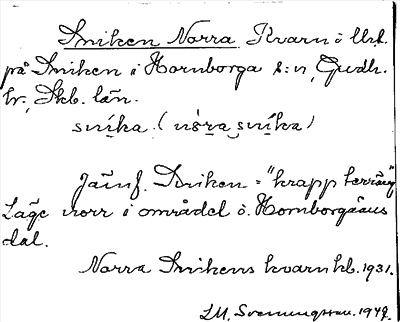 Sniken Norra Kvarn o. Urk.
på Sniken i Hornborga s:n, Gudh.
hr, Skb. län.
sníka. (nòra sníka)
Jämf. Sniken = "knapp terräng"
Läge norr i området ö. Hornborgaåns
dal.
Norra Snikens kvarn hb. 1931.
I.M. Svenungsson. 1942.